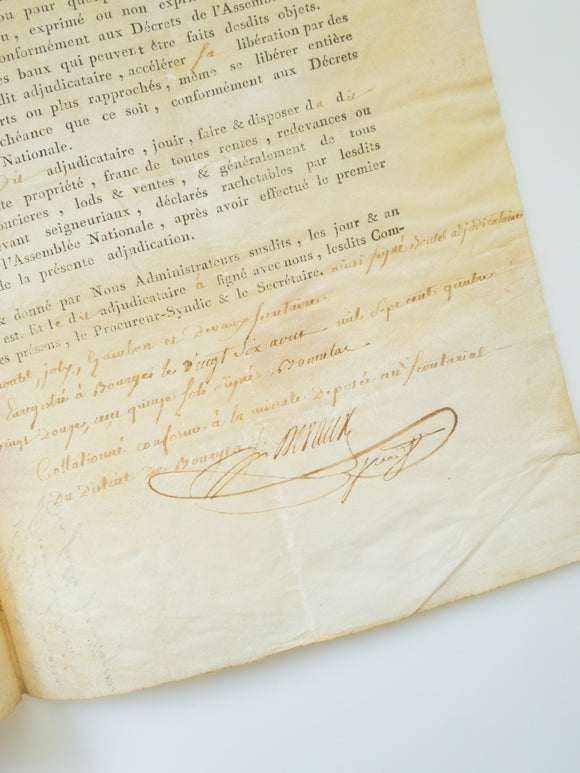 ou pour quelq
u, exprimé ou non exprim
conformément aux Décrets de l'Assemb
es baux qui peuvent être faits desdits objets.
dit adjudicataire, accélérer sa libération par des
rts ou plus rapprochés, même se libérer entière
chéance que ce soit, conformément aux Décrets
Nationale.
dit adjudicataire, jouir, faire & disposer du dit
te propriété, franc de toutes rentes, redevances ou
oncieres, lods & ventes, & généralement de tous
evant seigneuriaux, déclarés rachetables par lesdits
l'Assemblée Nationale, après avoir effectué le premier
de la présente adjudication.
& donné par Nous Administrateurs susdits, les jour & an
est. Et le dit adjudicataire a signé avec nous, lesdits Com-
es présens, le Procureur-Syndic & le Secrétaire. ainsi signé adjudicataire
joly, et Devaux
Enregistré à Bourges le vingt six aout mil sept cent quatre
vingt douze, reçu quinze sols signé
Collationné conforme à la minute deposée au
Du District de Bourges
Devaux